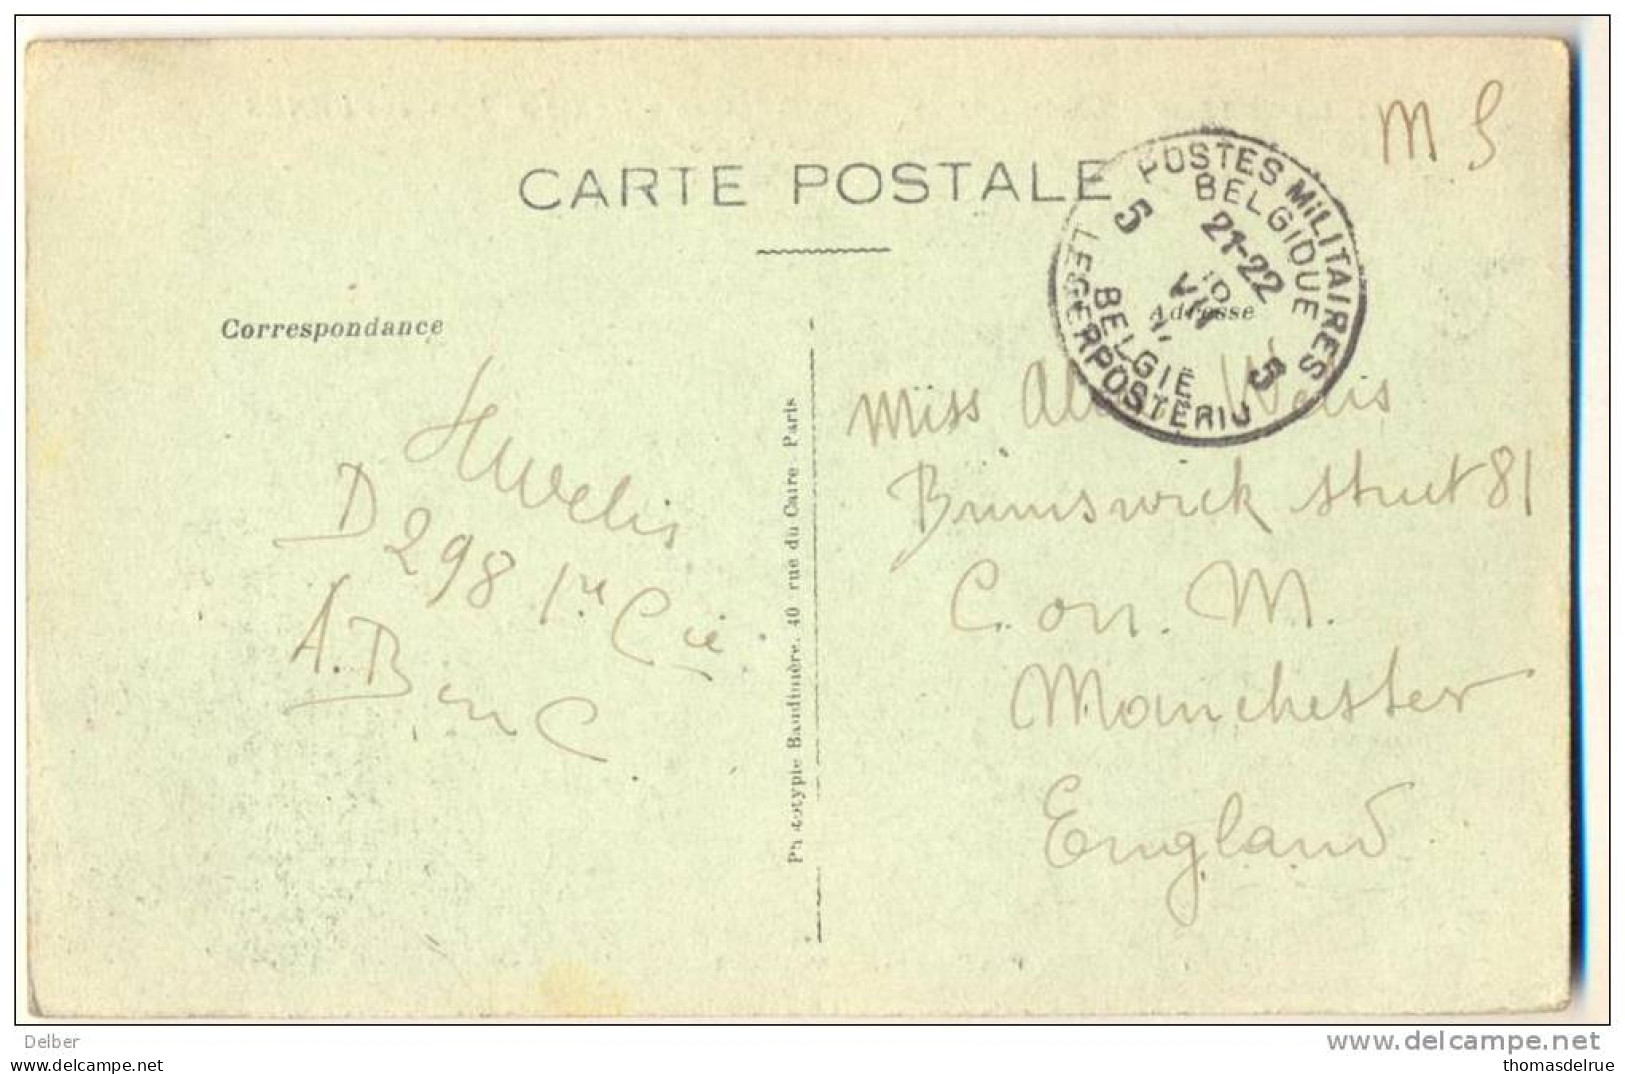 M S
CARTE POSTALE
POSTES MILITAIRES
BELGIQUE
5 21-22
VII
5
BELGIE
LEGERPOSTERIJ
Correspondance
Adresse
Huvelis
D 298 1re Cie
A. B en C.
Phototypie Baudinière, 40 rue du Caire Paris
Miss
Brunswick Street 81
C. on. M.
Manchester
England
Delber
delcampe.net
thomasdelrue